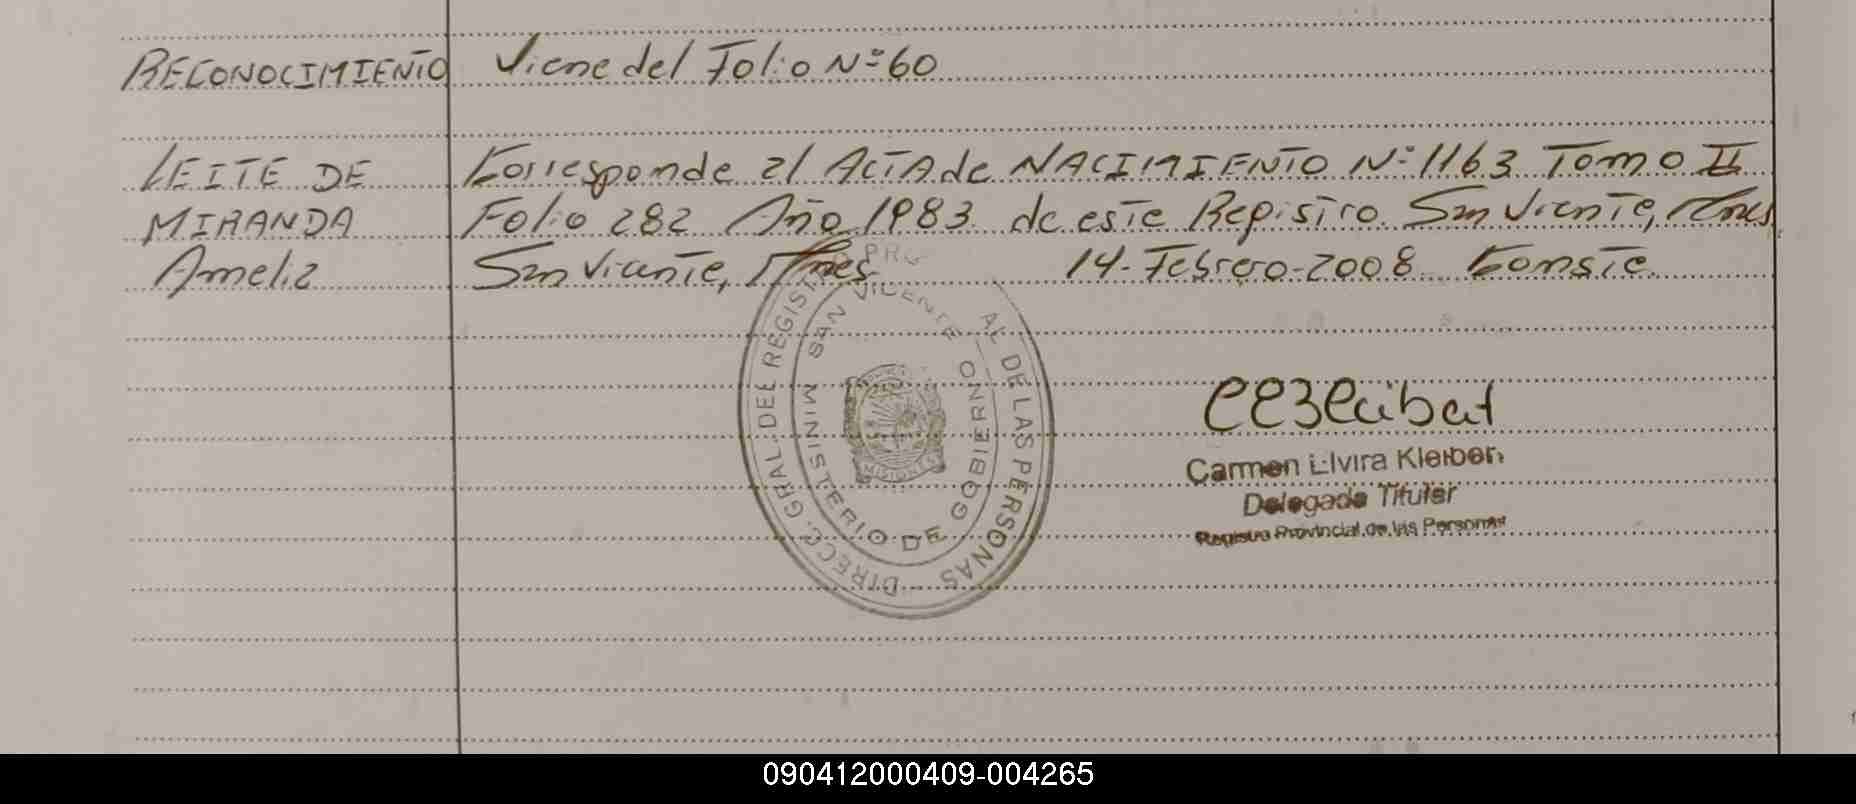 RECONOCIMIENTO Viene del Folio Nº 60
LEITE DE Corresponde al ACTA de NACIMIENTO Nº 1163 Tomo II
MIRANDA Folio 282 Año 1983 de este Registro. San Vicente, Mnes.
Amelia San Vicente, Mnes. 14-Febrero-2008. Conste.
DIRECC. GRAL. DEL REGISTRO PRO AL DE LAS PERSONAS
MINISTERIO DE GOBIERNO
SAN VICENTE
MISIONES
Carmen Elvira Kleiber
Delegada Titular
Registro Provincial de las Personas
090412000409-004265